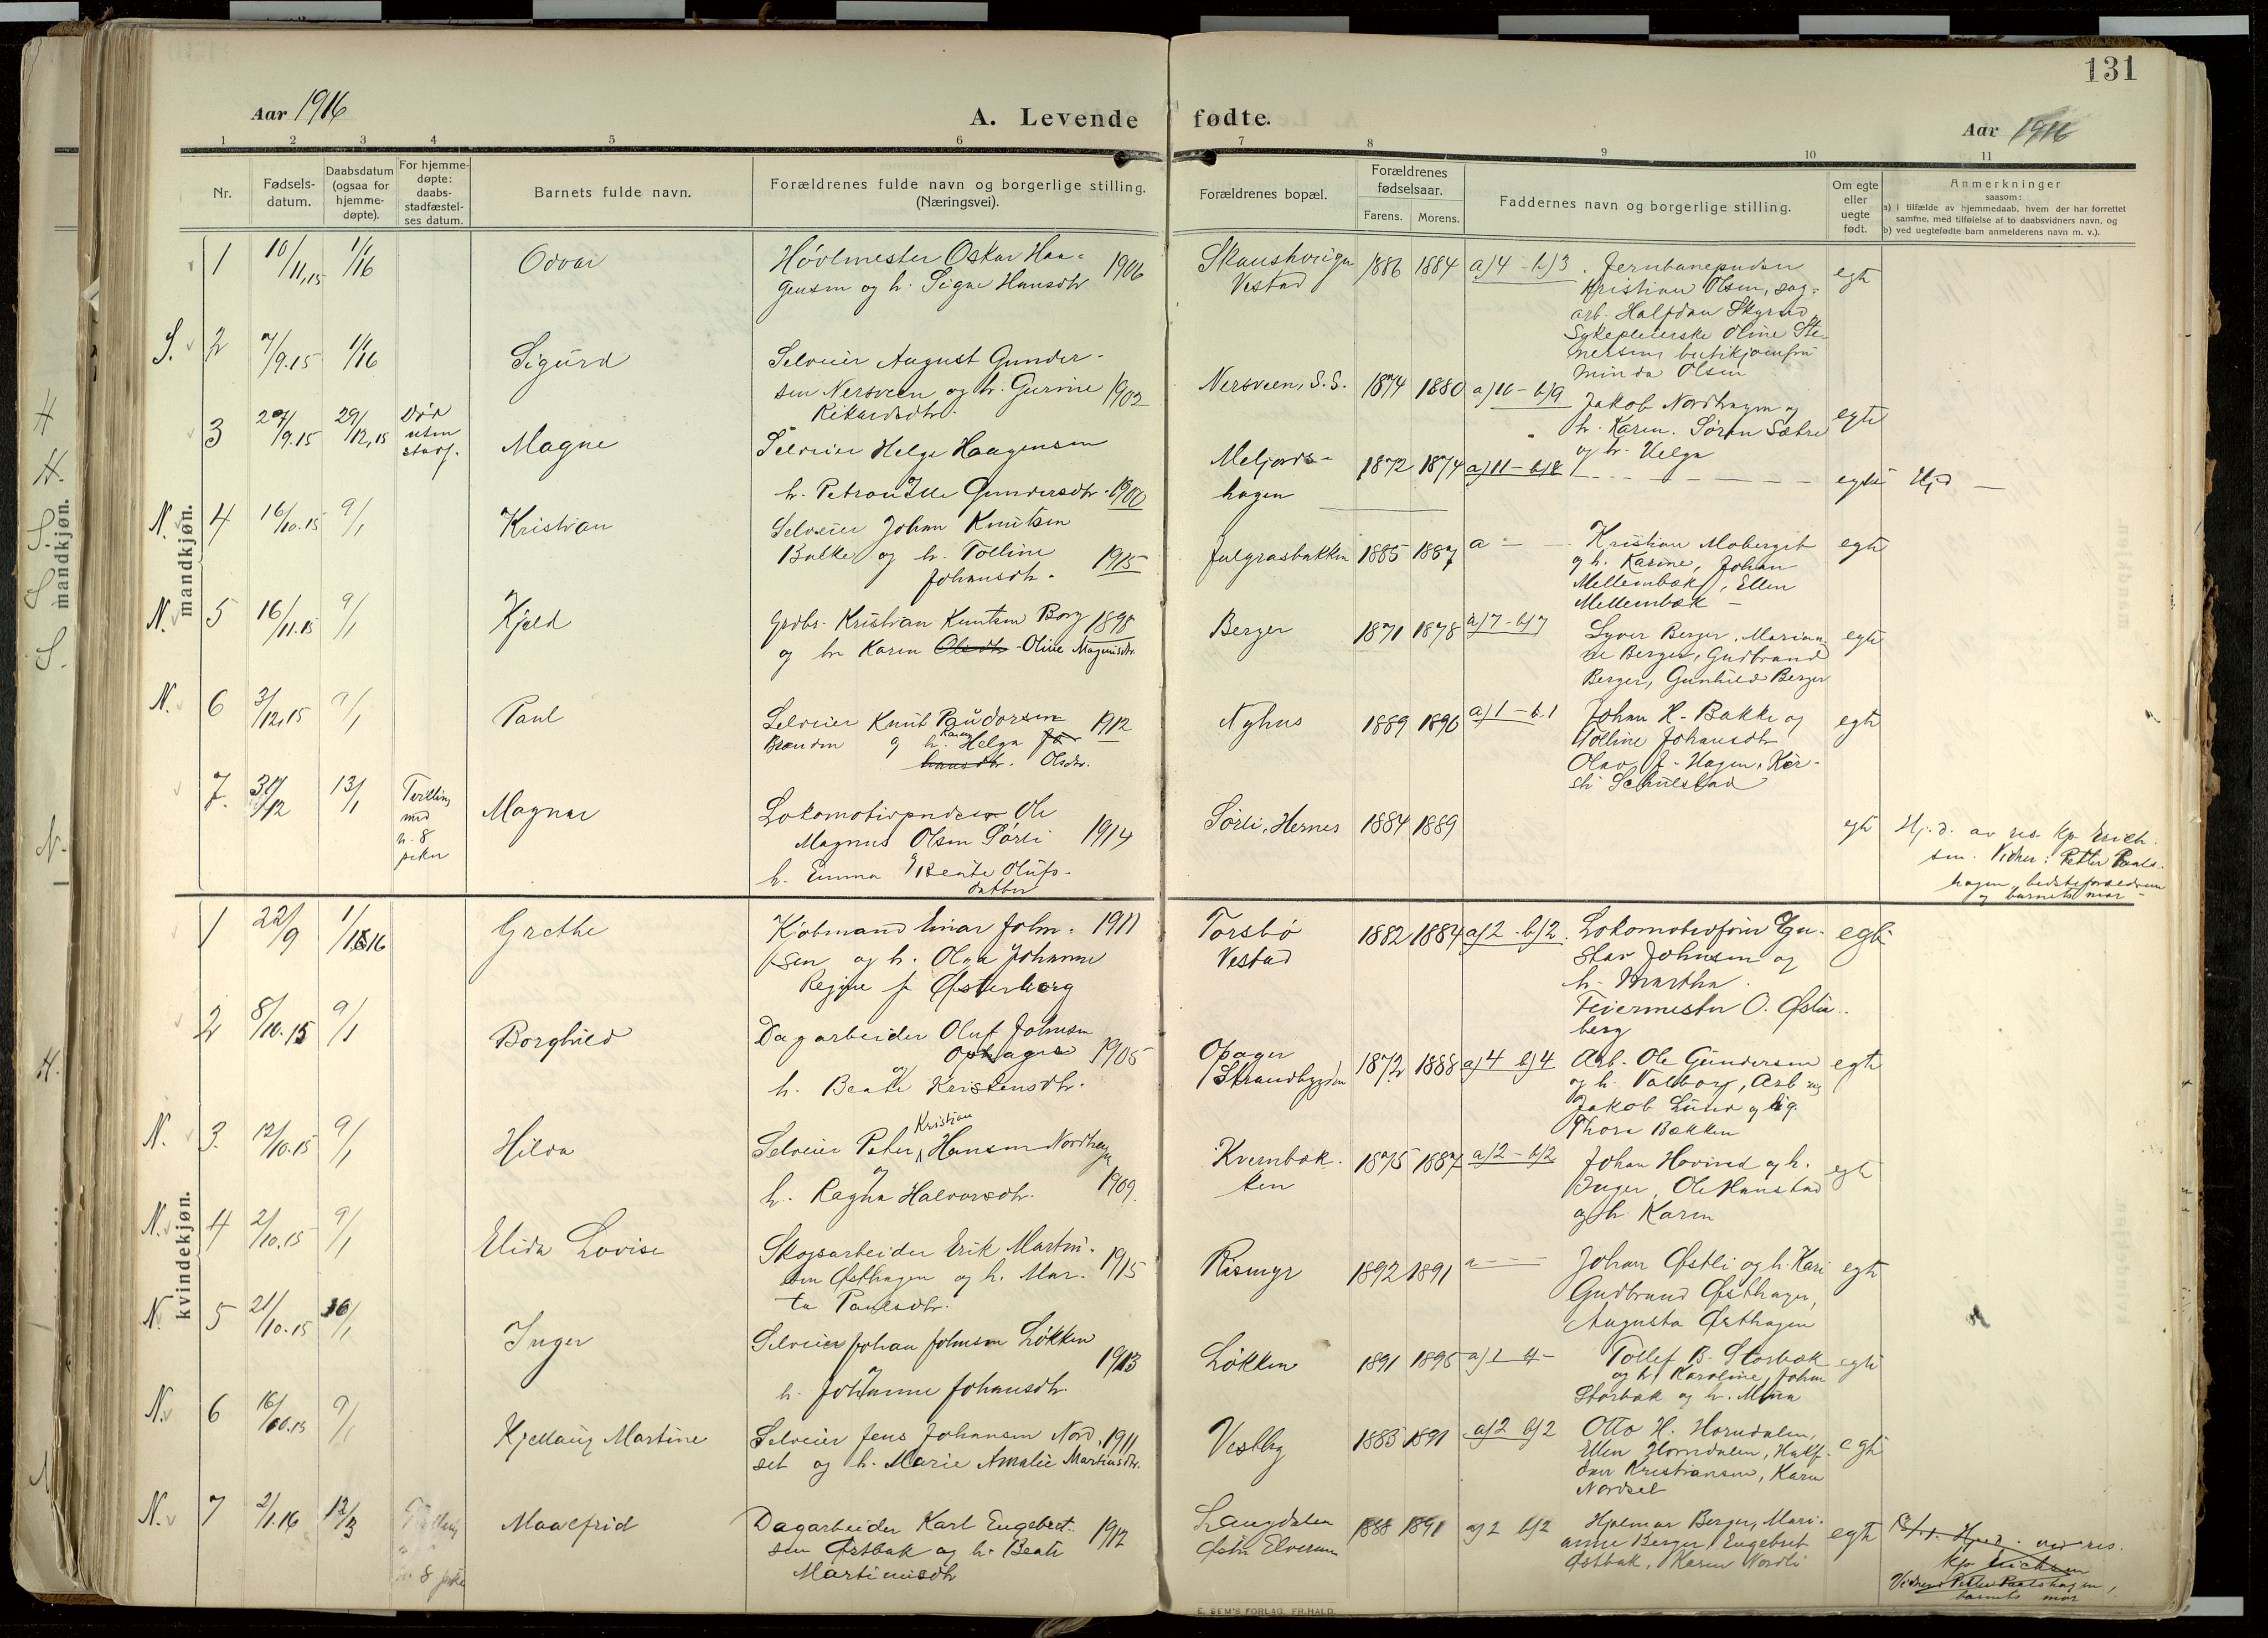 131
Aar 1916
A. Levende fødte.
Aar 1916
1 2 3 4 5 6 7 8 9 10 11
Nr.
Fødsels-
datum.
Daabsdatum
(ogsaa for
hjemme-
døpte).
For hjemme-
døpte:
daabs-
stadfæstel-
ses datum.
Barnets fulde navn.
Forældrenes fulde navn og borgerlige stilling.
(Næringsvei).
Forældrenes bopæl.
Forældrenes
fødselsaar.
Farens. Morens.
Faddernes navn og borgerlige stilling.
Om egte
eller
uegte
født.
Anmerkninger
saasom:
a) i tilfælde av hjemmedaab, hvem der har forrettet
samme, med tilføielse af to daabsvidners navn, og
b) ved uegtefødte barn anmelderens navn m. v.).
mandkjøn.
1 10/11,15 1/1 16
Odvar
Høvlmester Oskar Haa-
gensen og h. Signe Hansdtr 1906
Vestad
1886 1884 a)4 - b)3
Kristian Olsen, sag-
arb. Halfdan
Sykepleierske Oline Ste-
nersen, butikjomfru
Minda Olsen
egte
S. 2 7/9.15 1/1 16
Sigurd
Selveier August Gunder-
sen Nersveen og h. Gurine 1902
Rikardsdtr.
Nersveen, S.S. 1874 1880 a)10 - b)9
Jakob Nordhagen og
h. Karen. Søren Sætre
og h. Helga
egte
3 27/9.15 29/12,15
Død
uten
stadf.
Magne
Selveier Helge Haagensen
og
h. Petronelle Gundersdtr. 1900
hagen
1872 1874 a)11 - b)8
egte Hjd
N. 4 16/10.15 9/1
Kristian
Selveier Johan Knutsen
Bakke og h. Tolline 1915
Johansdtr.
Julgrasbakken 1885 1887 a
Kristian Moberget
og h. Karine, Johan
Mellembæk, Ellen
Mellembæk
egte
N. 5 16/11.15 9/1
Kjeld
Grdbr. Kristian Knutsen Berg 1898
og h. Karen Olsdtr Oline Magnusdtr.
Berger 1871 1878 a)7 - b)7
Syver Berger, Marian-
ne Berger, Gudbrand
Berger, Gunhild Berger
egte
N. 6 3/12,15 9/1
Paul
Selveier Knut Paulsen 1912
Brænden og h. Karen Helga Jo-
hansdtr. Olsdtr.
Nyhus 1889 1896 a)1 - b.1
Johan K. Bakke og
Tolline Johansdtr
Olav J. Hagen, Kir-
sti Schulstad
egte
7. 31/12 13/1
Tvilling
med
n. 8
piker
Magnar
Lokomotivpudser Ole
Magnus Olsen Sørli 1914
og
h. Emma Beate Olufs-
datter
Sørli, Hernes 1884 1889
egte
Hj.d. av res. kp. Erich-
sen. Vidner: Petter Paals-
hagen, bedsteforældrene
og barnets mor
kvindekjøn.
1 22/9 1/1 16
Grethe
Kjøbmand Einar John- 1911
sen og h. Olga Johanne
Regine f. Østerberg
Torsbø
Vestad
1882 1884 a)2 - b)2
Lokomotivfører Gu-
stav Johnsen og
h. Martha
Feiermester O. Øster-
berg
egte
2 8/10.15 9/1
Borghild
Dagarbeider Oluf Johnsen
Ophagen 1905
og
h. Beate Kristensdtr.
Opager
Strandbygden
1872 1888 a)4 b)4
Arb. Ole Gundersen
og h. Valborg, Arb
Jakob Lund og
Thora Bakken
egte
N. 3. 12/10.15 9/1
Hilda
Kristian
Selveier Peter Hansen Nordhagen
og
h. Ragna Halvorsdtr. 1909.
Kvernbak-
ken
1875 1887 a)2 - b)2
Johan Hovind og h.
Inger, Ole Hanstad
og h. Karen
egte
N. 4 2/10.15 9/1
Elida Lovise
Skogsarbeider Erik Martin-
sen Østhagen og h. Mar- 1915
ta Paulsdtr.
Rismyr 1892 1891 a
Johan Østli og h. Kari
Gudbrand Østhagen,
Augusta Østhagen
egte
N. 5 21/10.15 16/1
Inger
Selveier Johan Johnsen Løkken
og 1913
h. Johanne Johansdtr.
Løkken 1891 1895 a)1
Tollef B. Storbæk
og h. Karoline, Johan
Storbæk og h. Mina
egte
N. 6 16/10.15 9/1
Kjellaug Martine
Selveier Jens Johansen Nord- 1911
set og h. Marie Amalie Martinsdtr.
Vestby 1883 1891 a)2 b)2
Otto H. Horndalen,
Ellen Horndalen, Half-
dan Kristiansen, Karen
Nordset
egte
N. 7 2/1.16 12/3
n. 8
Maalfrid
Dagarbeider Karl Engebret-
sen Østbæk og h. Beate 1912
Martinusdtr
Langdalen
Østre Elverum
1888 1891 a)2 b)2
Hjalmar Berger, Mari-
anne Berger, Engebret
Østbæk, Karen Nordli
egte
Hjd. ved res.
kp. Erichsen
Vidner: Petter Paalshagen,
barnets mor
E. SEM'S FORLAG, FR.HALD.